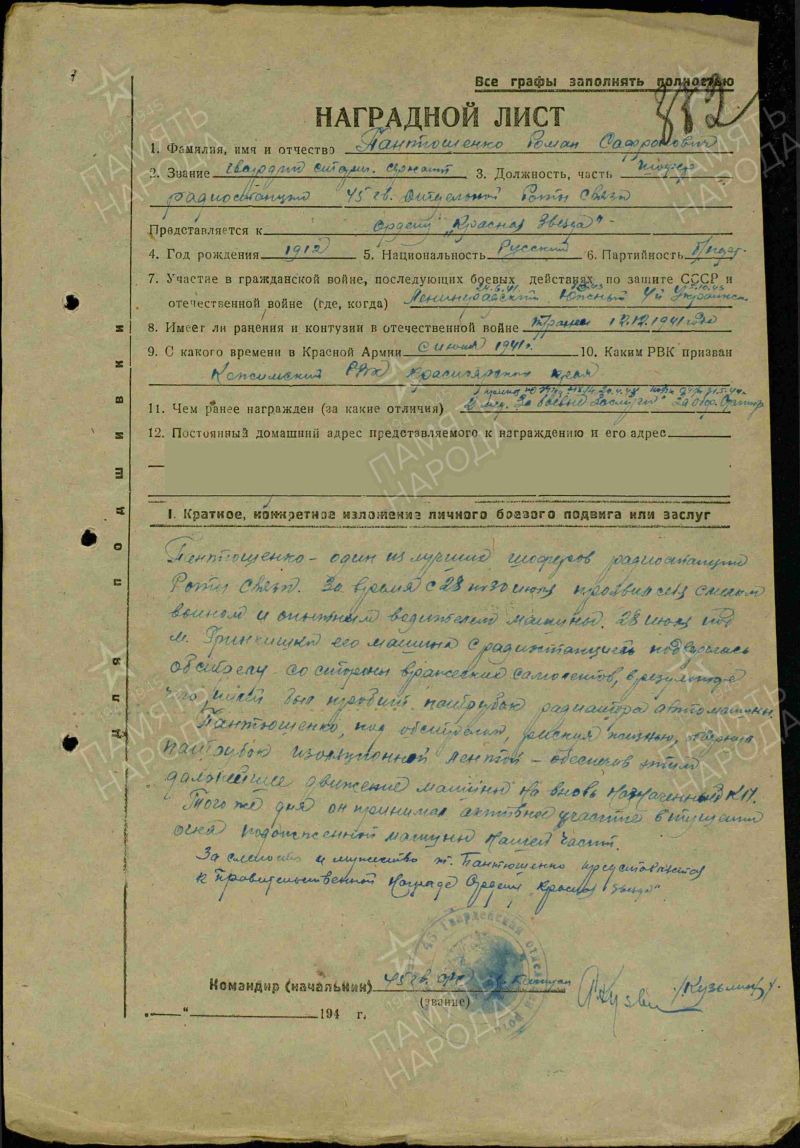 Все графы заполнять полностью
882
НАГРАДНОЙ ЛИСТ
1. Фамилия, имя и отчество Пантюшенко Роман Сафронович
2. Звание гвардии старш. сержант 3. Должность, часть шофер
радиостанции 45 гв. отдельной Роты Связи
Представляется к Ордену "Красная Звезда"
4. Год рождения 1912 5. Национальность Русский 6. Партийность б/парт.
7. Участие в гражданской войне, последующих боевых действиях по защите СССР и
отечественной войне (где, когда) Ленинградский Южный 4й Украинс
8. Имеет ли ранения и контузии в отечественной войне 12.12.1941 года
9. С какого времени в Красной Армии с июля 1941 г. 10. Каким РВК призван
РВК Красноярского края
11. Чем ранее награжден (за какие отличия) 2 мед. "За боевые заслуги"
12. Постоянный домашний адрес представляемого к награждению и его адрес
I. Краткое, конкретное изложение личного боевого подвига или заслуг
Пентюшенко - один из лучших шоферов радиостанции
Роты Связи. За время с 28 по 30 июля проявил себя смелым
воином и опытным водителем машины. 28 июля под
м. Гринкишки его машина с радиостанцией подверглась
обстрелу со стороны вражеских самолетов, в результате
чего был пробит патрубок радиатора автомашины.
Пантюшенко, под обстрелом, рискуя жизнью,
патрубок изоляционной лентой - обеспечив этим
дальнейшее движение машины на вновь назначенный КП.
Того же дня он принимал активное участие в тушении
огня подожженной машины нашей части.
За смелость и мужество т. Пантюшенко представляется
к Правительственной награде Ордену "Красная Звезда"
Командир (начальник) 45 гв. ОРС гв. Капитан /Кузьмин/
(звание)
„—“ 194 г.
Для подшивки
ПАМЯТЬ НАРОДА